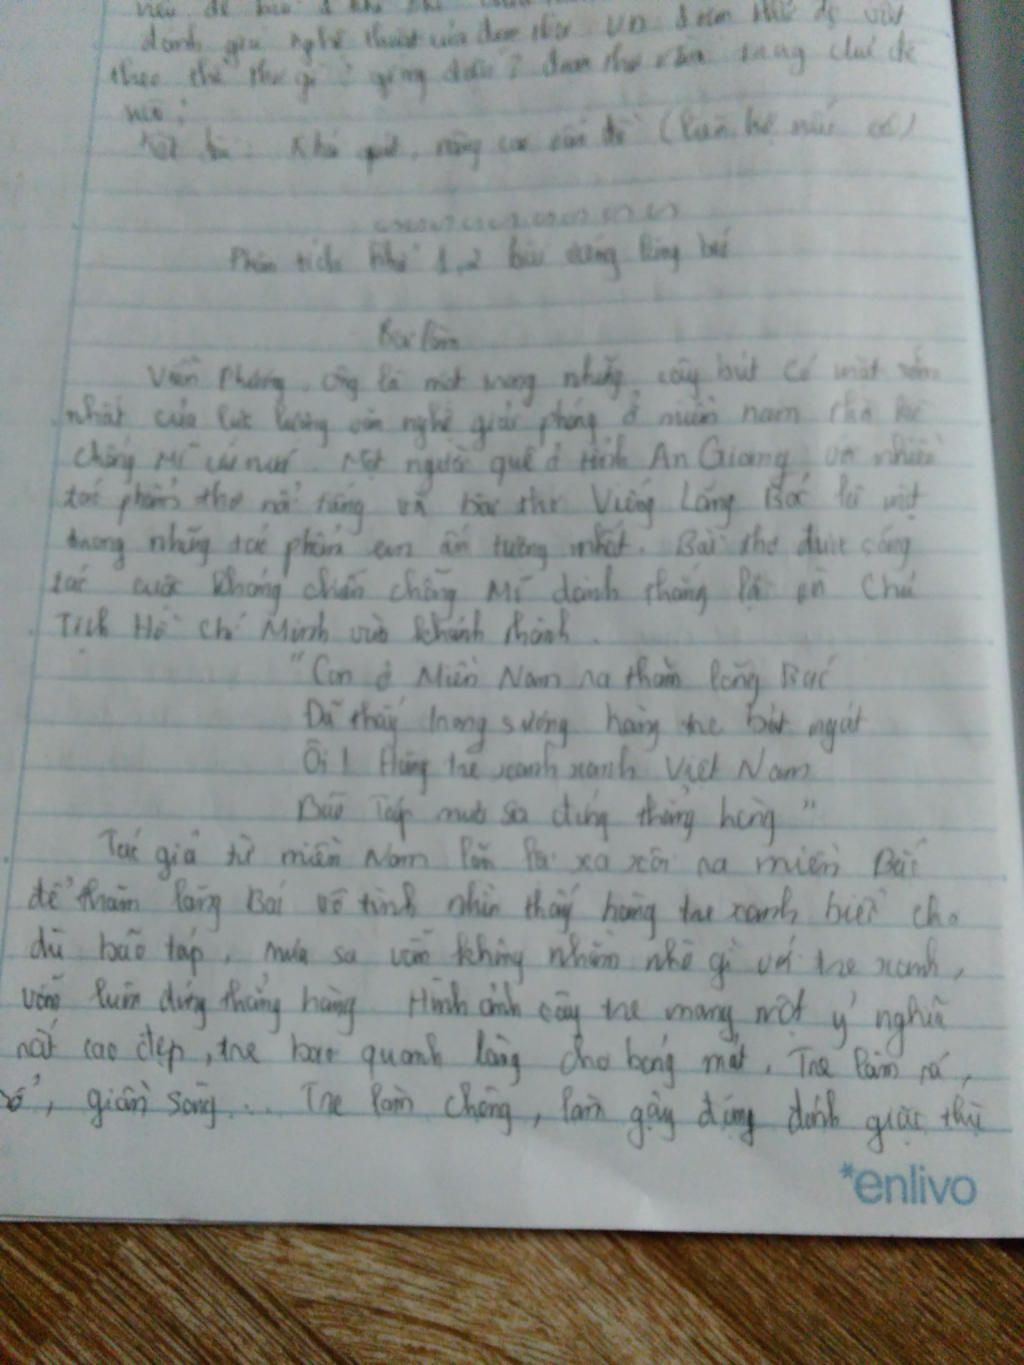 đánh giá nghệ thuật của đoạn thơ
theo thể thơ gì? giọng điệu? đoạn thơ chủ đề
nào?
Kết bài: Khái quát, nâng cao vấn đề (liên hệ nếu có)
Phân tích khổ 1,2 bài viếng lăng bác
Bài làm
Viễn Phương, ông là một trong những cây bút có mặt sớm
nhất của lực lượng văn nghệ giải phóng ở miền nam thời kì
chống Mĩ cứu nước. Một người quê ở tỉnh An Giang, với nhiều
tác phẩm thơ nổi tiếng và bài thơ Viếng Lăng Bác là một
trong những tác phẩm ấn tượng nhất. Bài thơ được sáng
tác cuộc kháng chiến chống Mĩ dành thắng lợi Chủ
Tịch Hồ Chí Minh vừa khánh thành.
"Con ở Miền Nam ra thăm lăng Bác
Đã thấy trong sương hàng tre bát ngát
Ôi! Hàng tre xanh xanh Việt Nam
Bão Táp mưa sa đứng thẳng hàng"
Tác giả từ miền Nam xa xôi ra miền Bắc
để thăm lăng Bác vô tình nhìn thấy hàng tre xanh biếc cho
dù bão táp, mưa sa vẫn không nhằm nhò gì với tre xanh,
vẫn luôn đứng thẳng hàng. Hình ảnh cây tre mang một ý nghĩa
rất cao đẹp, tre bao quanh làng cho bóng mát. Tre làm rá,
sổ, giần sàng... Tre làm chông, làm gậy đứng đánh giặc thù
*enlivo